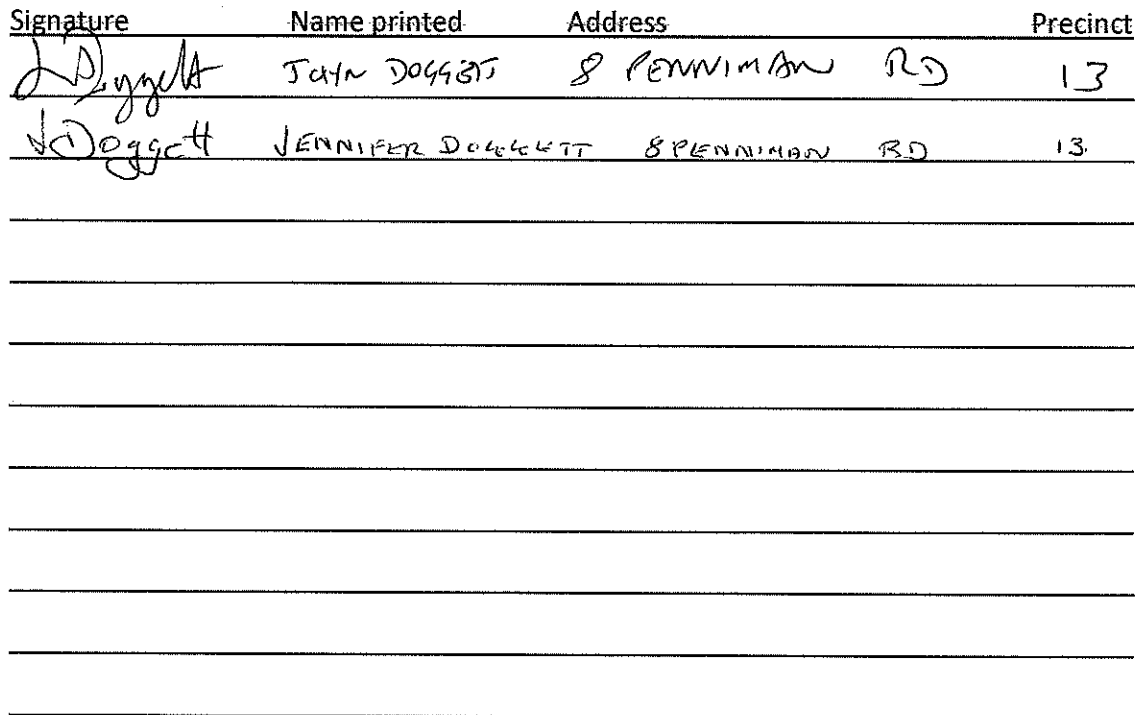 Signature Name printed Address Precinct
Doggett JOHN DOGGETT 8 PENNIMAN RD 13
J Doggett JENNIFER DOGGETT 8 PENNIMAN RD 13